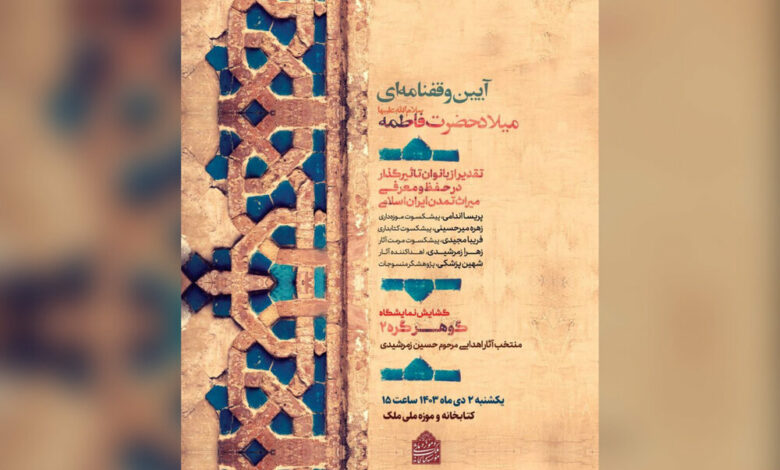 آیین وقفنامه‌ای
میلاد حضرت فاطمه سلام‌الله‌علیها
تقدیر از بانوان تاثیرگذار
در حفظ و معرفی
میراث تمدن ایران اسلامی
پریسا اندامی، پیشکسوت موزه‌داری
زهره میرحسینی، پیشکسوت کتابداری
فریبا مجیدی، پیشکسوت مرمت آثار
زهرا زمرشیدی، اهداکننده آثار
شهین پزشکی، پژوهشگر منسوجات
گشایش نمایشگاه
گوهر گره ۲
منتخب آثار اهدایی مرحوم حسین زمرشیدی
یکشنبه ۲ دی ماه ۱۴۰۳ ساعت ۱۵
کتابخانه و موزه ملی ملک